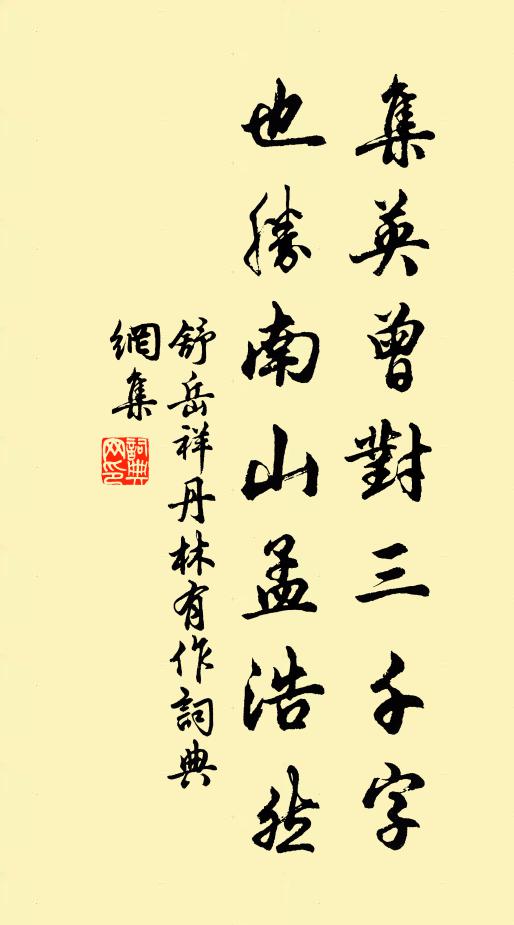 集英曾對三千字
也勝南山孟浩然
舒岳祥丹林有作詞典
網集
詞典網印